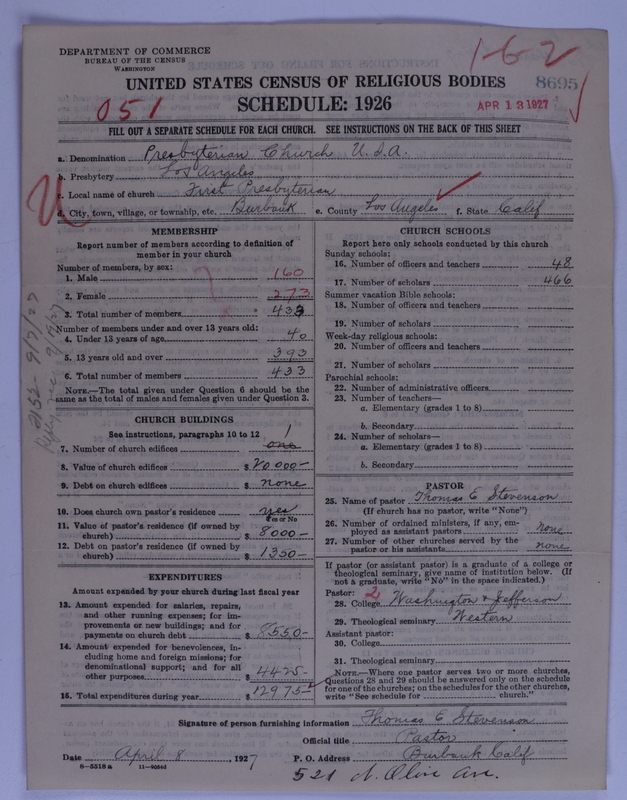 DEPARTMENT OF COMMERCE
BUREAU OF THE CENSUS
WASHINGTON
1-6-2
UNITED STATES CENSUS OF RELIGIOUS BODIES
8695
051
SCHEDULE: 1926
APR 13 1927
FILL OUT A SEPARATE SCHEDULE FOR EACH CHURCH. SEE INSTRUCTIONS ON THE BACK OF THIS SHEET
a. Denomination Presbyterian Church U.S.A.
b. Presbytery Los Angeles
c. Local name of church First Presbyterian
d. City, town, village, or township, etc. Burbank e. County Los Angeles f. State Calif
MEMBERSHIP
Report number of members according to definition of
member in your church
Number of members, by sex:
1. Male 160
2. Female 273
3. Total number of members 433
Number of members under and over 13 years old:
4. Under 13 years of age 40
5. 13 years old and over 393
6. Total number of members 433
NOTE.—The total given under Question 6 should be the
same as the total of males and females given under Question 3.
CHURCH BUILDINGS
See instructions, paragraphs 10 to 12
7. Number of church edifices one 1
8. Value of church edifices $ 20000-
9. Debt on church edifices $ none
10. Does church own pastor's residence yes
Yes or No
11. Value of pastor's residence (if owned by
church) $ 8000-
12. Debt on pastor's residence (if owned by
church) $ 1350-
EXPENDITURES
Amount expended by your church during last fiscal year
13. Amount expended for salaries, repairs,
and other running expenses; for im-
provements or new buildings; and for
payments on church debt $ 8550-
14. Amount expended for benevolences, in-
cluding home and foreign missions; for
denominational support; and for all
other purposes $ 4425-
15. Total expenditures during year $ 12975-
CHURCH SCHOOLS
Report here only schools conducted by this church
Sunday schools:
16. Number of officers and teachers 48
17. Number of scholars 466
Summer vacation Bible schools:
18. Number of officers and teachers
19. Number of scholars
Week-day religious schools:
20. Number of officers and teachers
21. Number of scholars
Parochial schools:
22. Number of administrative officers
23. Number of teachers—
a. Elementary (grades 1 to 8)
b. Secondary
24. Number of scholars—
a. Elementary (grades 1 to 8)
b. Secondary
PASTOR
25. Name of pastor Thomas E Stevenson
(If church has no pastor, write "None")
26. Number of ordained ministers, if any, em-
ployed as assistant pastors none
27. Number of other churches served by the
pastor or his assistants none
If pastor (or assistant pastor) is a graduate of a college or
theological seminary, give name of institution below. (If
not a graduate, write "No" in the space indicated.)
Pastor: 2
28. College Washington & Jefferson
29. Theological seminary Western
Assistant pastor:
30. College
31. Theological seminary
NOTE.—Where one pastor serves two or more churches,
Questions 28 and 29 should be answered only on the schedule
for one of the churches; on the schedules for the other churches,
write "See schedule for church."
Signature of person furnishing information Thomas E Stevenson
Official title Pastor
Date April 8 1927 P. O. Address Burbank Calif
8-5518a 11-9054d 521 N. Olive Ave.